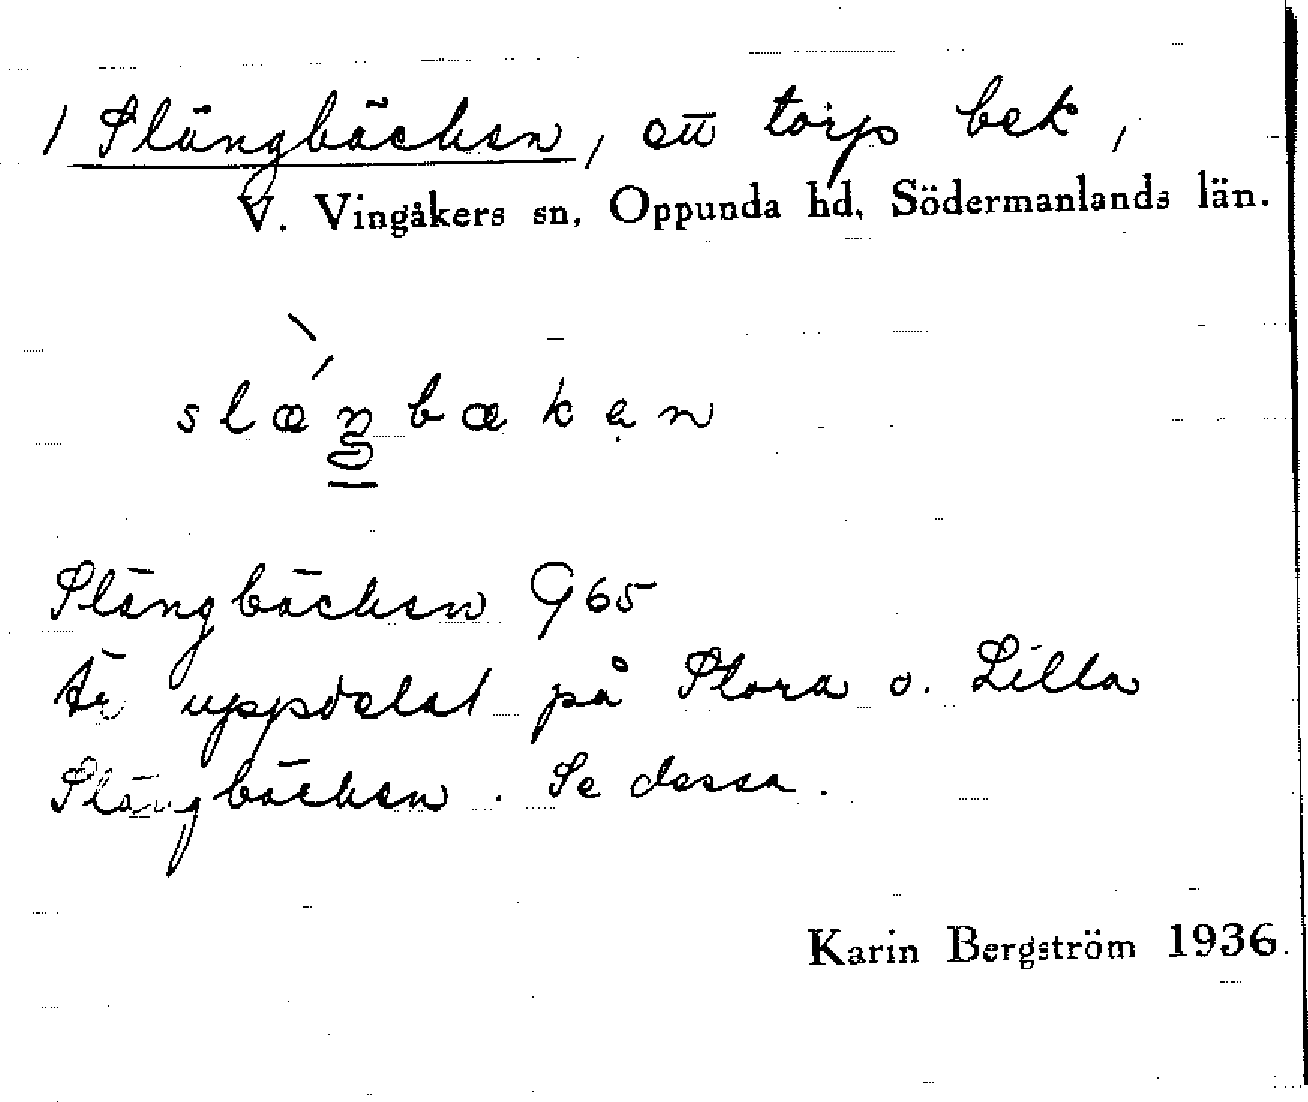 1 Slängbäcken, ett torp bek,
V. Vingåkers sn, Oppunda hd, Södermanlands län.
slæŋbækən
Slängbäcken G 65
är uppdelat på Stora o. Lilla
Slängbäcken. Se dessa.
Karin Bergström 1936.